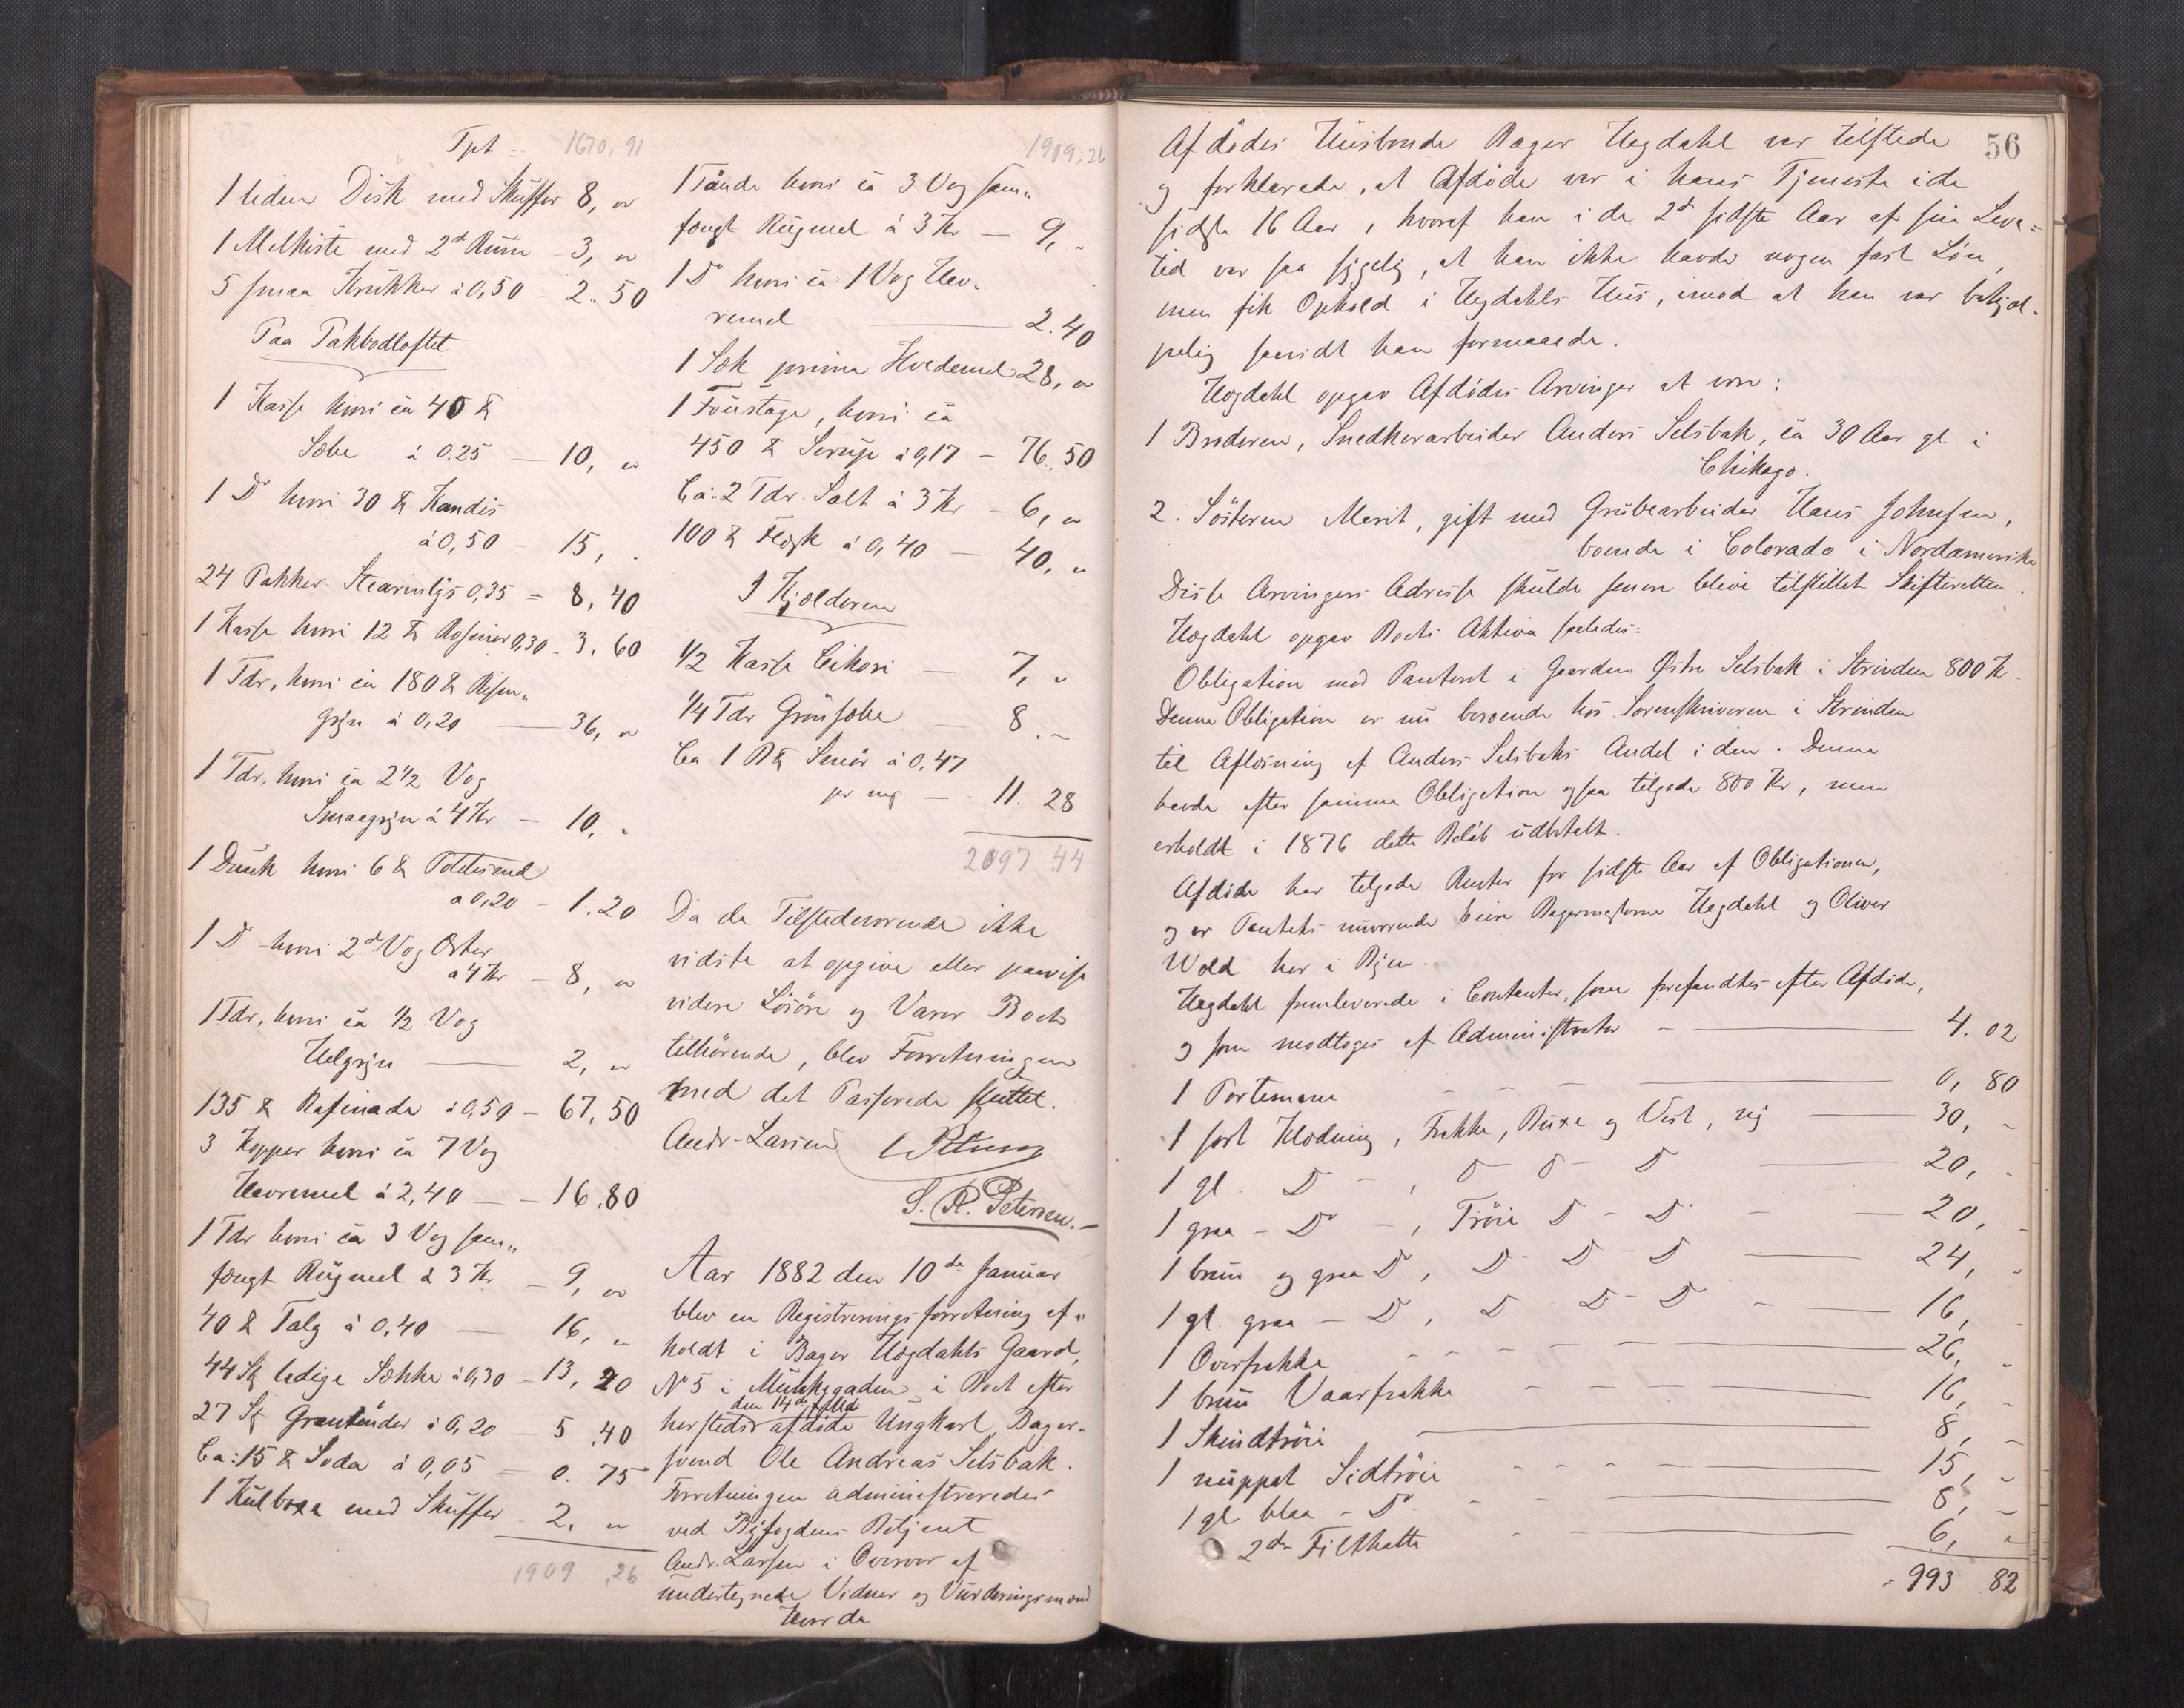 Tpt = 1670,91
1 liden Disk med Skuffer 8, "
1 Melkiste med 2de Rum - 3, "
5 smaa Krukker à 0,50 - 2.50
Paa Pakbodloftet
1 Kasse hvori ca 40 ℔
Sæbe à 0.25 — 10, "
1 Do hvori 30 ℔ Kandis
à 0,50 - 15, "
24 Pakker Stearinlys 0,35 = 8,40
1 Kasse hvori 12 ℔ Rosiner 0,30 - 3,60
1 Tdr, hvori ca 180 ℔ Risen"
gryn à 0,20 — 36, "
1 Tdr, hvori ca 2 1/2 Vog
Smaagryn à 4 Kr — 10, "
1 Dunk hvori 6 ℔ Potetesmel
a 0,20 - 1.20
1 Do hvori 2de Vog Erter
a 4 Kr - 8, "
1 Tdr, hvori ca 1/2 Vog
Helgryn — 2, "
135 ℔ Rafinade à 0,50 - 67,50
3 Kopper hvori ca 7 Vog
Havremel à 2,40 — 16.80
1 Tdr hvori ca 3 Vog sam"
fængt Rugmel à 3 Kr - 9, "
40 ℔ Talg à 0,40 — 16, "
44 Stk ledige Sække à 0,30 - 13,20
27 Stk Grantønder à 0,20 - 5,40
Ca: 15 ℔ Soda à 0,05 - 0.75
1 Kulboxe med Skuffer - 2, "
1909,26
1909,26
1 Tønde hvori ca 3 Vog sam"
fængt Rugmel à 3 Kr — 9, "
1 Do hvori ca 1 Vog Hav-
remel — 2.40
1 Sæk prima Hvedemel 28, "
1 Foustage, hvori ca
450 ℔ Sirup à 0,17 - 76,50
Ca: 2 Tdr. Salt à 3 Kr - 6, "
100 ℔ Flesk à 0,40 — 40, "
I Kjælderen
1/2 Kasse Cikori — 7, "
1/4 Tdr Grønsæbe 8. "
Ca 1 B℔ Smør à 0,47
pr mrk — 11.28
2097 44
Da de Tilstedeværende ikke
vidste at opgive eller paavise
videre Løsøre og Varer Boet
tilhørende, blev Forretningen
med det Passerede sluttet.
Andr. Larsen
S. R. Petersen.
Aar 1882 den 10de Januar
blev en Registreringsforretning af"
holdt i Bager Hegdahls Gaard,
No 5 i Munkegaden i Boet efter
den 14de f. Md.
herstedsr afdøde Ungkarl, Bager-
svend Ole Andreas Selsbak.
Forretningen administreredes
ved Byfogdens Betjent
Andr. Larsen i Overvær af
undertegnede Vidner og Vurderingsmænd
Hvor da
56
Afdødes Husbonde Bager Hegdahl var tilstede
og forklarede, at Afdøde var i hans Tjeneste i de
sidste 16 Aar, hvoraf han i de 2de sidste Aar af sin Leve=
tid var saa sygelig, at han ikke havde nogen fast Løn,
men fik Ophold i Hegdahls Hus, imod at han var behjæl-
pelig saavidt han formaaede.
Hegdahl opgav Afdødes Arvinger at være:
1 Broderen, Snedkerarbeider Anders Selsbak, ca 30 Aar gl i
Chikago.
2. Søsteren Marit, gift med Grubearbeider Hans Johnsen,
boende i Colorado i Nordamerika
Disse Arvingers Adresse skulde senere blive tilstillet Skifteretten.
Hegdahl opgav Boets Aktiva saaledes:
Obligation med Panteret i Gaarden Østre Selsbak i Strinden 800 Kr.
Denne Obligation er nu beroende hos Sorenskriveren i Strinden
til Aflæsning af Anders Selsbaks Andel i den. Denne
havde efter samme Obligation ogsaa tilgode 800 Kr, men
erholdt i 1876 dette Beløb udbetalt.
Afdøde har tilgode Renter for sidste Aar af Obligationen,
og er Pantets nuværende Eiere Bagermesterne Hegdahl og Oliver
Wold her i Byen.
Hegdahl fremleverede i Contanter, som forefandtes efter Afdøde,
og som modtoges af Administrator — 4.02
1 Portemone — 0,80
1 sort Klædning, Frakke, Buxe og Vest, ny — 30, "
1 gl. Do -, Do Do Do — 20, "
1 graa - Do -, Trøie Do - Do — 20, "
1 brun og graa Do, Do - Do - Do — 24, "
1 gl. graa - Do, Do Do - Do — 16, "
1 Overfrakke — 26, "
1 brun Vaarfrakke — 16, "
1 Skindtrøie — 8, "
1 nuppet Sidtrøie — 15, "
1 gl blaa - Do — 8, "
2de Filthatte — 6, "
993 82